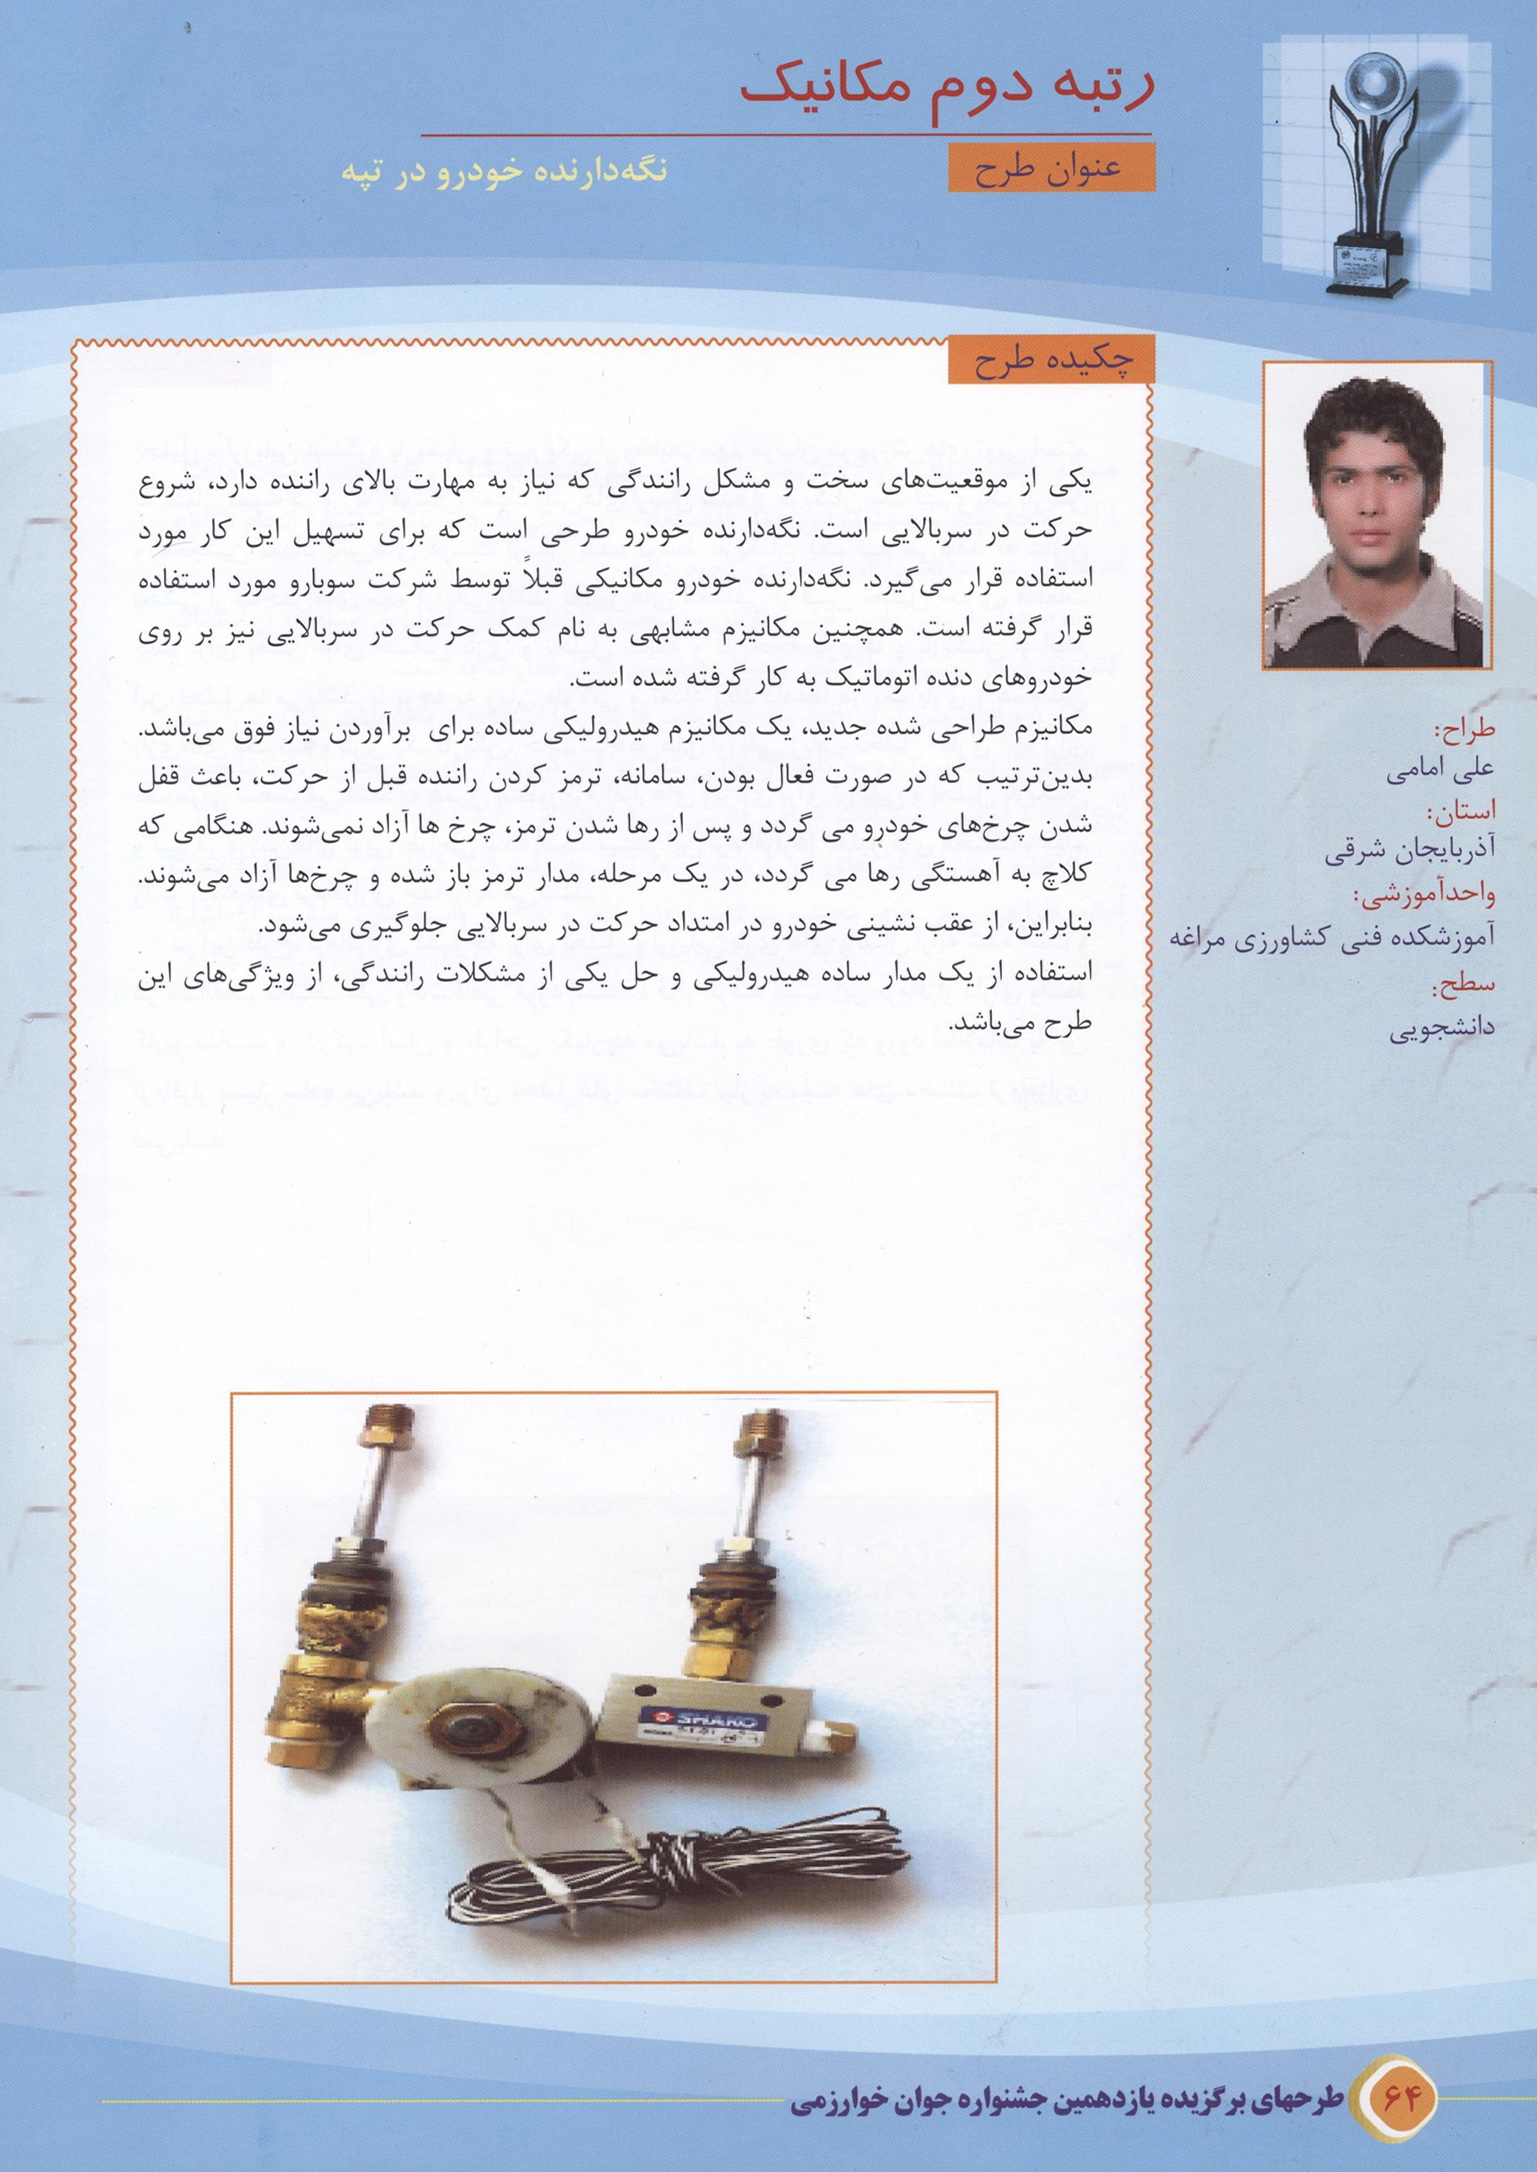 رتبه دوم مکانیک
عنوان طرح
نگه‌دارنده خودرو در تپه
چکیده طرح
یکی از موقعیت‌های سخت و مشکل رانندگی که نیاز به مهارت بالای راننده دارد، شروع
حرکت در سربالایی است. نگه‌دارنده خودرو طرحی است که برای تسهیل این کار مورد
استفاده قرار می‌گیرد. نگه‌دارنده خودرو مکانیکی قبلاً توسط شرکت سوبارو مورد استفاده
قرار گرفته است. همچنین مکانیزم مشابهی به نام کمک حرکت در سربالایی نیز بر روی
خودروهای دنده اتوماتیک به کار گرفته شده است.
مکانیزم طراحی شده جدید، یک مکانیزم هیدرولیکی ساده برای برآوردن نیاز فوق می‌باشد.
بدین‌ترتیب که در صورت فعال بودن، سامانه، ترمز کردن راننده قبل از حرکت، باعث قفل
شدن چرخ‌های خودرو می گردد و پس از رها شدن ترمز، چرخ ها آزاد نمی‌شوند. هنگامی که
کلاچ به آهستگی رها می گردد، در یک مرحله، مدار ترمز باز شده و چرخ‌ها آزاد می‌شوند.
بنابراین، از عقب نشینی خودرو در امتداد حرکت در سربالایی جلوگیری می‌شود.
استفاده از یک مدار ساده هیدرولیکی و حل یکی از مشکلات رانندگی، از ویژگی‌های این
طرح می‌باشد.
طراح:
علی امامی
استان:
آذربایجان شرقی
واحدآموزشی:
آموزشکده فنی کشاورزی مراغه
سطح:
دانشجویی
SHAKO
۶۴
طرحهای برگزیده یازدهمین جشنواره جوان خوارزمی